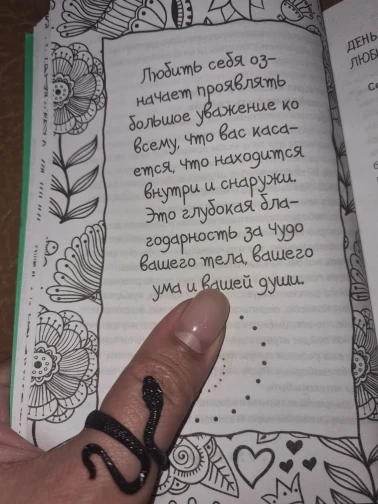 Любить себя оз-
начает проявлять
большое уважение ко
всему, что вас каса-
ется, что находится
внутри и снаружи.
Это глубокая бла-
годарность за чудо
вашего тела, вашего
ума и вашей души.
ДЕНЬ
ЛЮБ